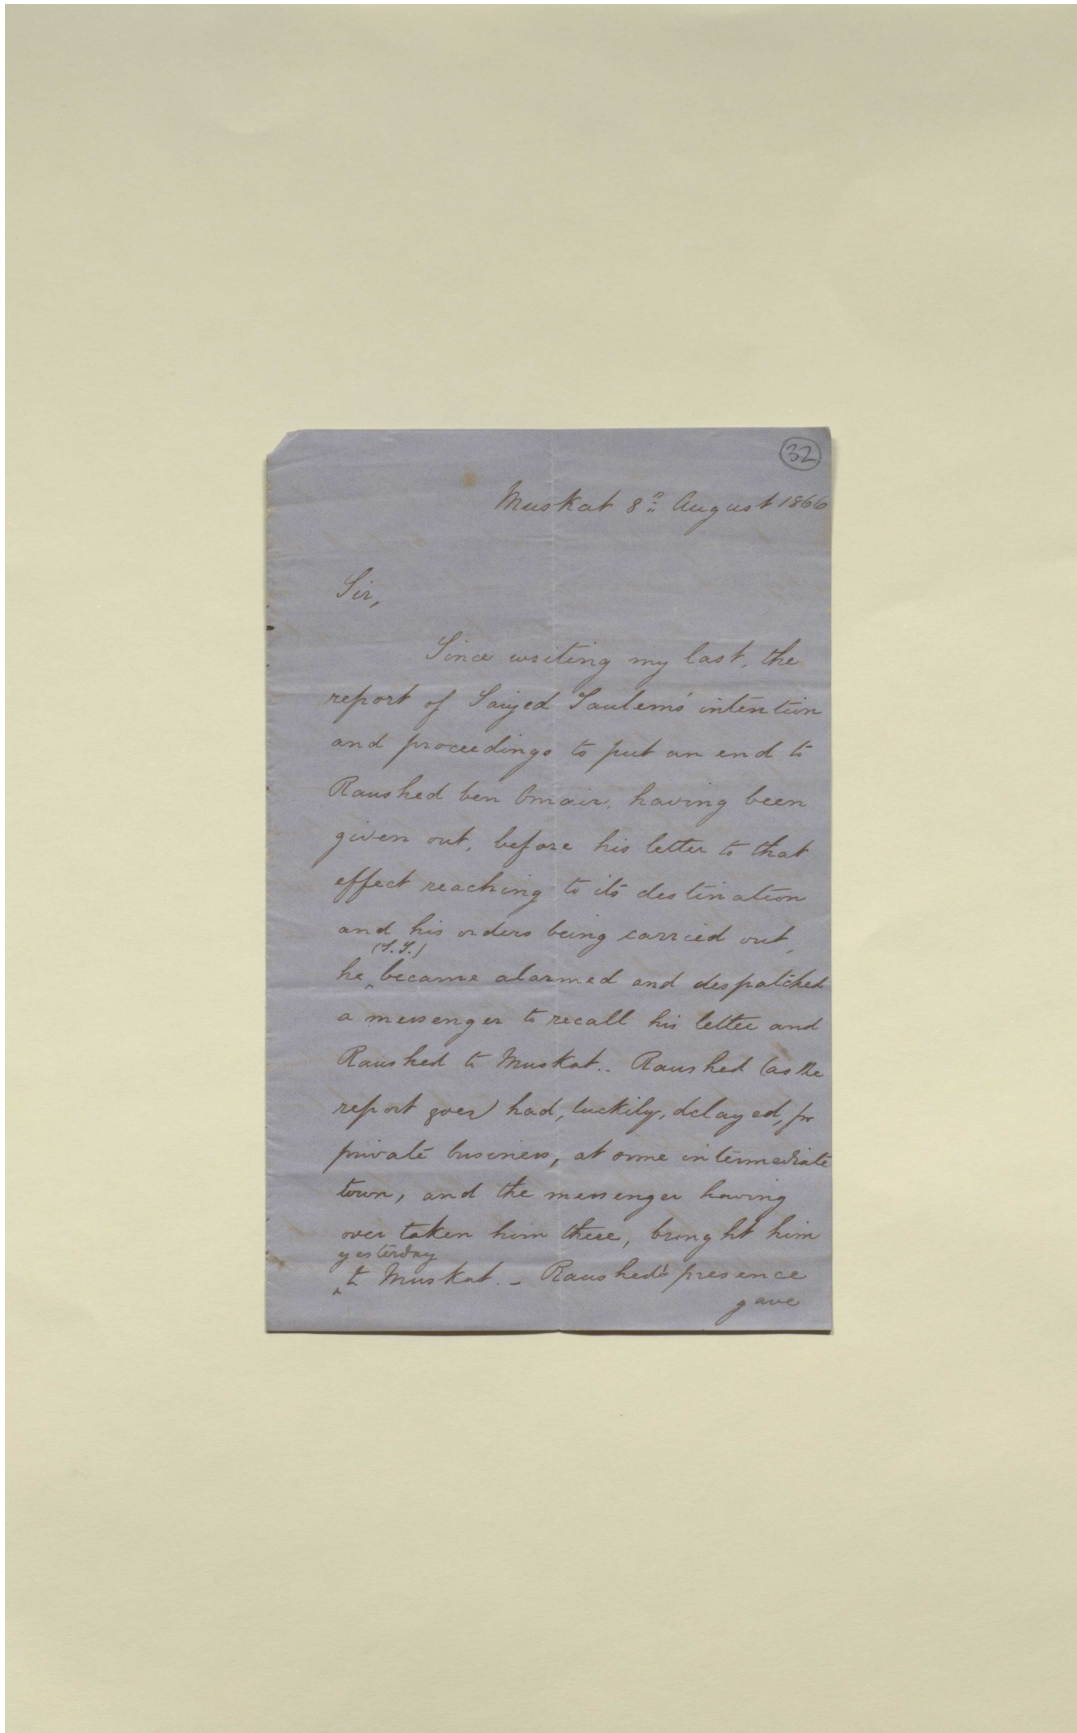 32
Muskat 8th August 1866
Sir,
Since writing my last, the
report of Saiyed Saulem's intention
and proceedings to put an end to
Raushed ben Omair, having been
given out, before his letter to that
effect reaching to its destination
and his orders being carried out,
he (S.S.) became alarmed and despatched
a messenger to recall his letter and
Raushed to Muskat.. Raushed (as the
report goes) had, luckily, delayed, for
private business, at some intermediate
town, and the messenger having
over taken him there, brought him
yesterday
to Muskat. – Raushed's presence
gave